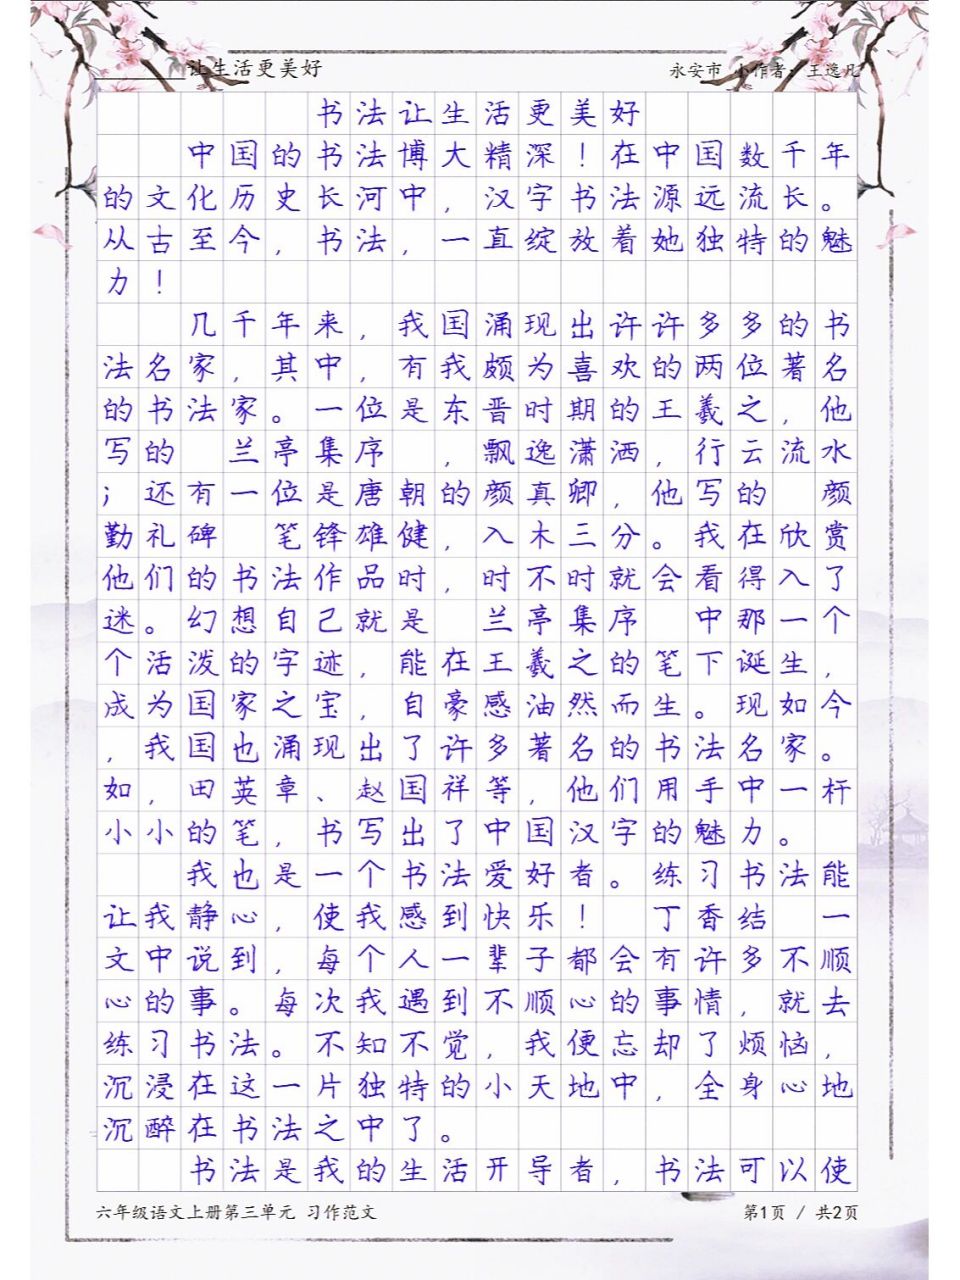 ________让生活更美好
永安市 小作者：王逸凡
书法让生活更美好
中国的书法博大精深！在中国数千年
的文化历史长河中，汉字书法源远流长。
从古至今，书法，一直绽放着她独特的魅
力！
几千年来，我国涌现出许许多多的书
法名家，其中，有我颇为喜欢的两位著名
的书法家。一位是东晋时期的王羲之，他
写的 兰亭集序 ，飘逸潇洒，行云流水
；还有一位是唐朝的颜真卿，他写的 颜
勤礼碑 笔锋雄健，入木三分。我在欣赏
他们的书法作品时，时不时就会看得入了
迷。幻想自己就是 兰亭集序 中那一个
个活泼的字迹，能在王羲之的笔下诞生，
成为国家之宝，自豪感油然而生。现如今
，我国也涌现出了许多著名的书法名家。
如，田英章、赵国祥等，他们用手中一杆
小小的笔，书写出了中国汉字的魅力。
我也是一个书法爱好者。练习书法能
让我静心，使我感到快乐！ 丁香结 一
文中说到，每个人一辈子都会有许多不顺
心的事。每次我遇到不顺心的事情，就去
练习书法。不知不觉，我便忘却了烦恼，
沉浸在这一片独特的小天地中，全身心地
沉醉在书法之中了。
书法是我的生活开导者，书法可以使
六年级语文上册第三单元 习作范文
第1页 / 共2页